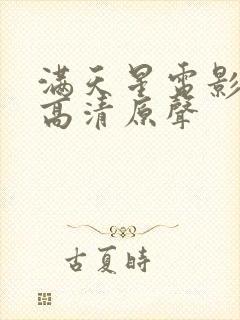 滿天星電影
高清原聲
古夏時